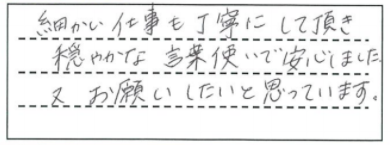 細かい仕事も丁寧にして頂き
穏やかな言葉使いで安心しました
又お願いしたいと思っています。